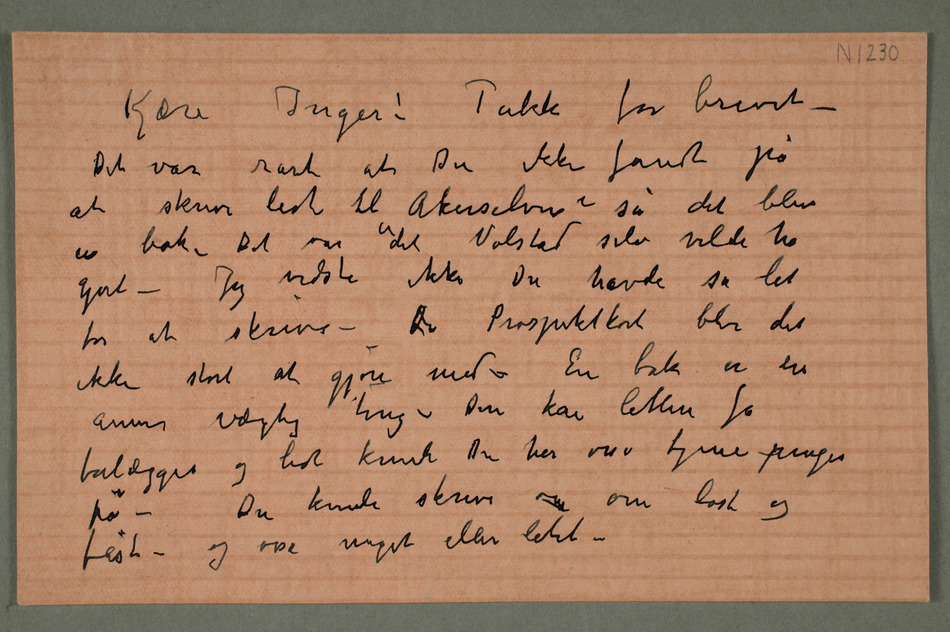 N1230
Kjære Inger! Takk for brevet –
Det var rart at Du ikke fandt på
at skrive lidt til Akerselven så det blev
en bok. Det var det Volstad selv vilde ha
gjort – Jeg vidste ikke Du havde så let
for at skrive – Prospektkort blir det
ikke stort at gjøre med – En bok er en
annen vægtig ting – Den kan lettere få
forlægger og lidt kunde Du her tjene penger
på – Du kunde skrive om løst og
fast – og meget eller lidet –